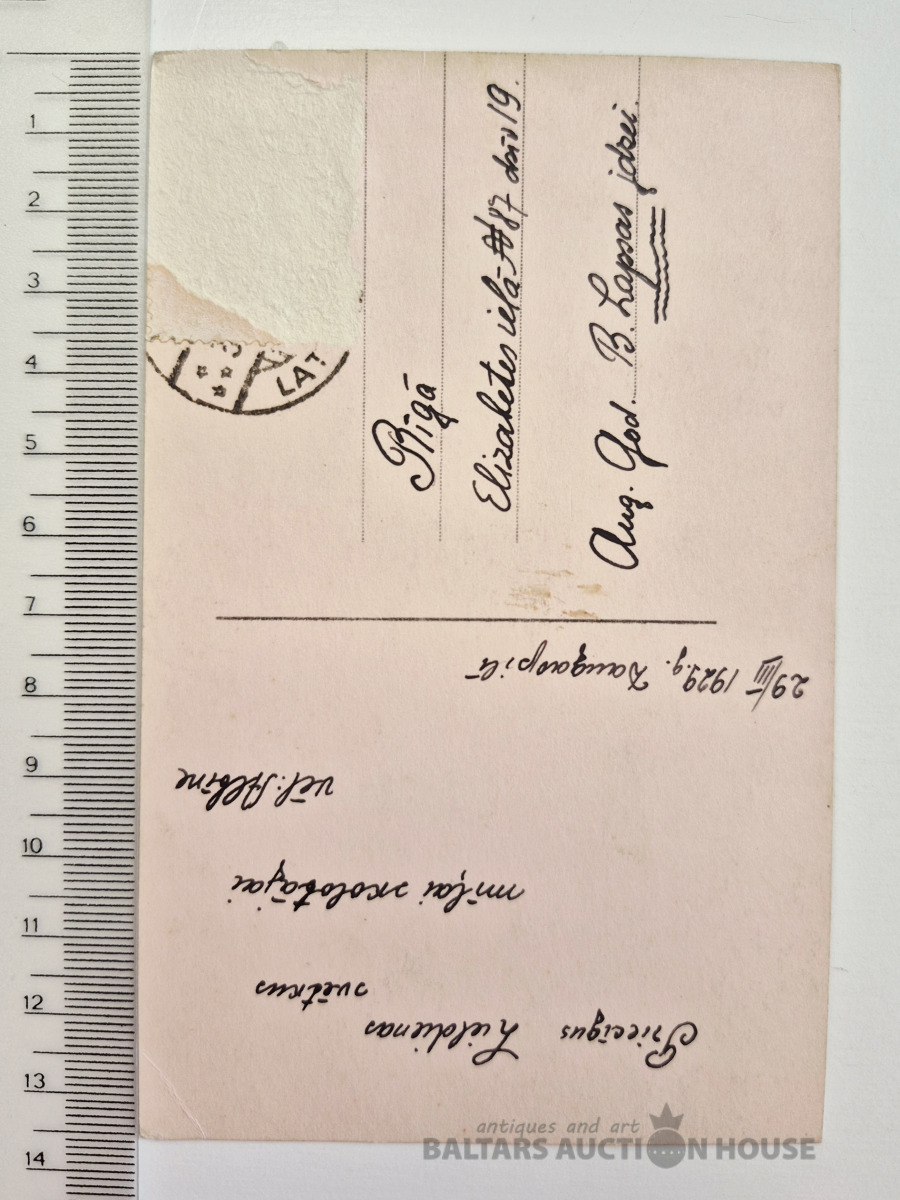 Priecīgus Lieldienas
svētkus
mīļai skolotājai
vēl: Albīne
29/III 1929.g. Daugavpilī
Rīgā
Elizabetes ielā № 87 dzīv 19.
Aug. God. B. Lapsas jdzei.
LAT
1
2
3
4
5
6
7
8
9
10
11
12
13
14
antiques and art
BALTARS AUCTION HOUSE